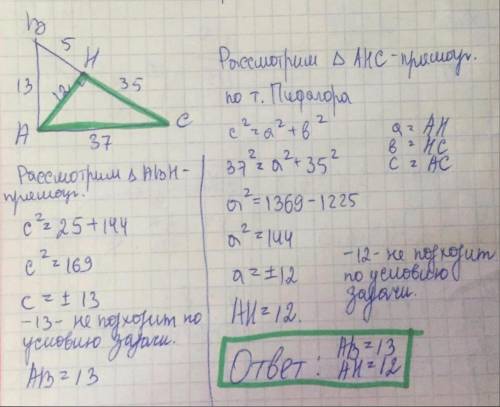 В
5
Н
13
12
35
А
37
С
Рассмотрим Δ АВН-
прямоуг.
c²=25+144
c²=169
c=±13
-13- не подходит по
условию задачи.
АВ=13
Рассмотрим Δ АНС-прямоуг.
по т. Пифагора
c²=a²+b²
37²=a²+35²
a²=1369-1225
a²=144
a=±12
АН=12.
a= АН
b= НС
c= АС
-12- не подходит
по условию
задачи.
Ответ: АВ=13
АН=12